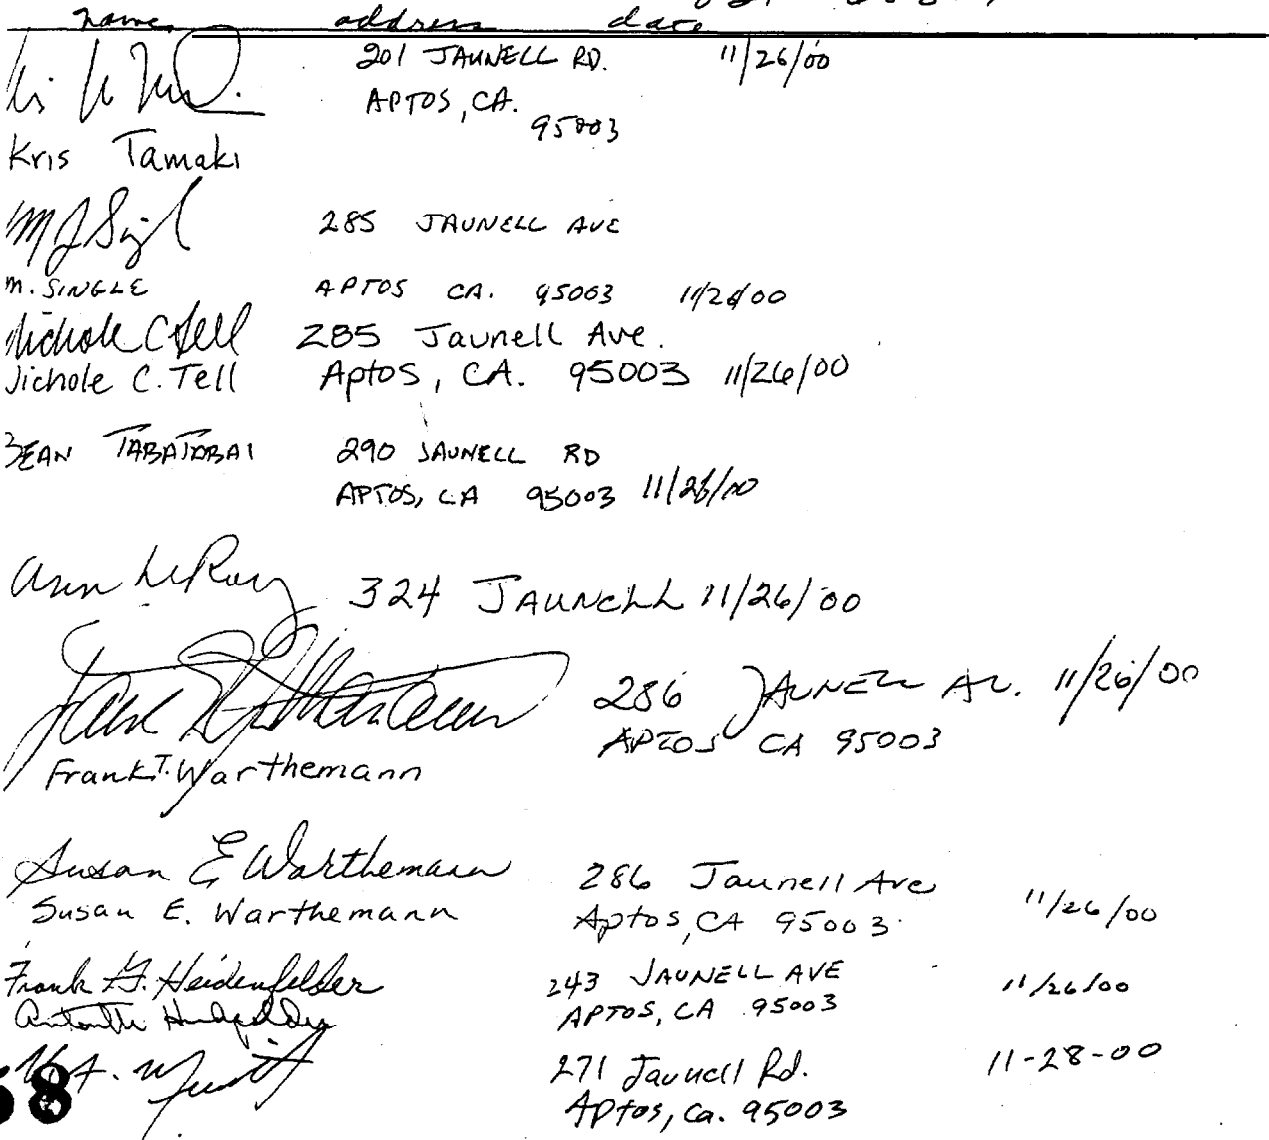 name address date
201 JAUNELL RD. 11/26/00
APTOS, CA.
95003
Kris Tamaki
285 JAUNELL AVE
M. SINGLE APTOS CA. 95003 11/26/00
Nichole C Tell 285 Jaunell Ave.
Nichole C. Tell Aptos, CA. 95003 11/26/00
TABATABAI 290 JAUNELL RD
APTOS, CA 95003 11/26/00
Ann LeRoy 324 JAUNELL 11/26/00
286 JAUNELL AV. 11/26/00
APTOS CA 95003
Frank T. Warthemann
Susan E Warthemann 286 Jaunell Ave
Susan E. Warthemann Aptos, CA 95003 11/26/00
Frank G. Heidenfelder 243 JAUNELL AVE 11/26/00
APTOS, CA 95003
271 Jaunell Rd. 11-28-00
Aptos, Ca. 95003